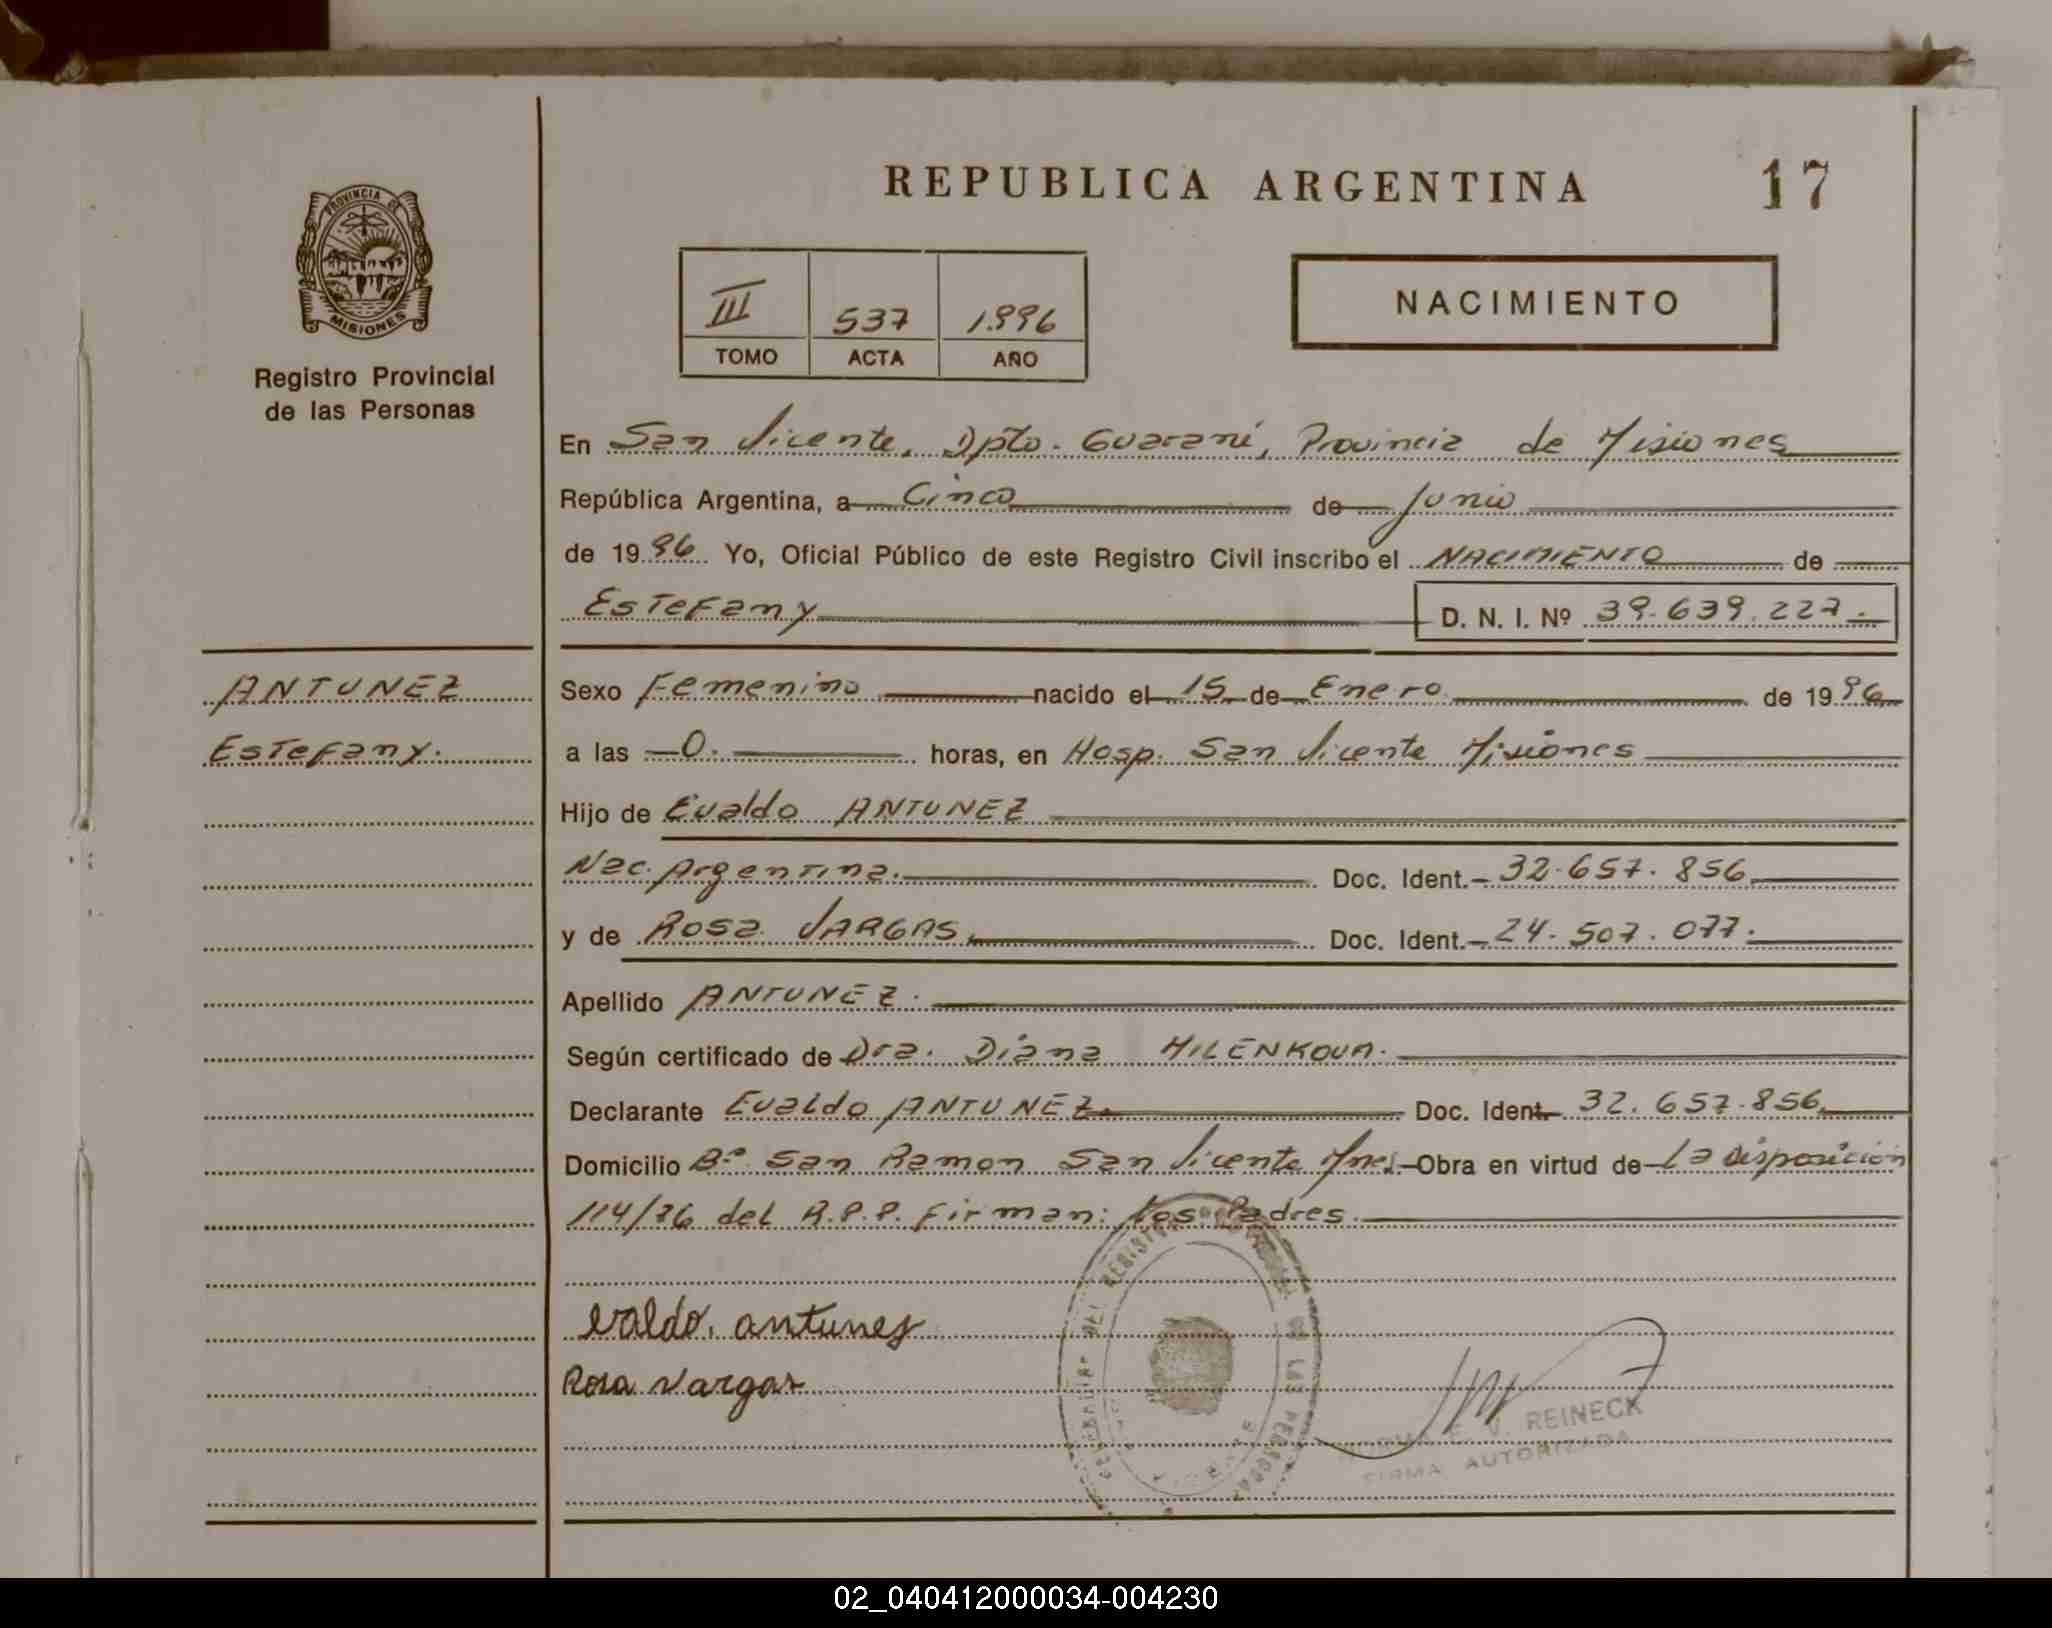 REPUBLICA ARGENTINA
17
PROVINCIA DE
MISIONES
Registro Provincial
de las Personas
III 537 1.996
TOMO ACTA AÑO
NACIMIENTO
En San Vicente, Dpto. Guaraní, Provincia de Misiones
República Argentina, a Cinco de Junio
de 1996 Yo, Oficial Público de este Registro Civil inscribo el NACIMIENTO de
Estefany D. N. I. Nº 39.639.227.-
ANTUNEZ
Estefany.
Sexo Femenino nacido el 15 de Enero de 1996
a las 0. horas, en Hosp. San Vicente Misiones
Hijo de Evaldo ANTUNEZ
Nac. Argentina. Doc. Ident.- 32.657.856
y de Rosa VARGAS. Doc. Ident.- 24.507.077.
Apellido ANTUNEZ.
Según certificado de Dra. Diana MILENKOVA.
Declarante Evaldo ANTUNEZ. Doc. Ident. 32.657.856
Domicilio Bº San Ramon San Vicente Mnes.- Obra en virtud de La disposición
114/76 del R.P.P. Firman: Los Padres.
evaldo. antunez
Rosa Vargas
REINECK
FIRMA AUTORIZADA
DEL REGISTRO DE LAS PERSONAS
02_040412000034-004230